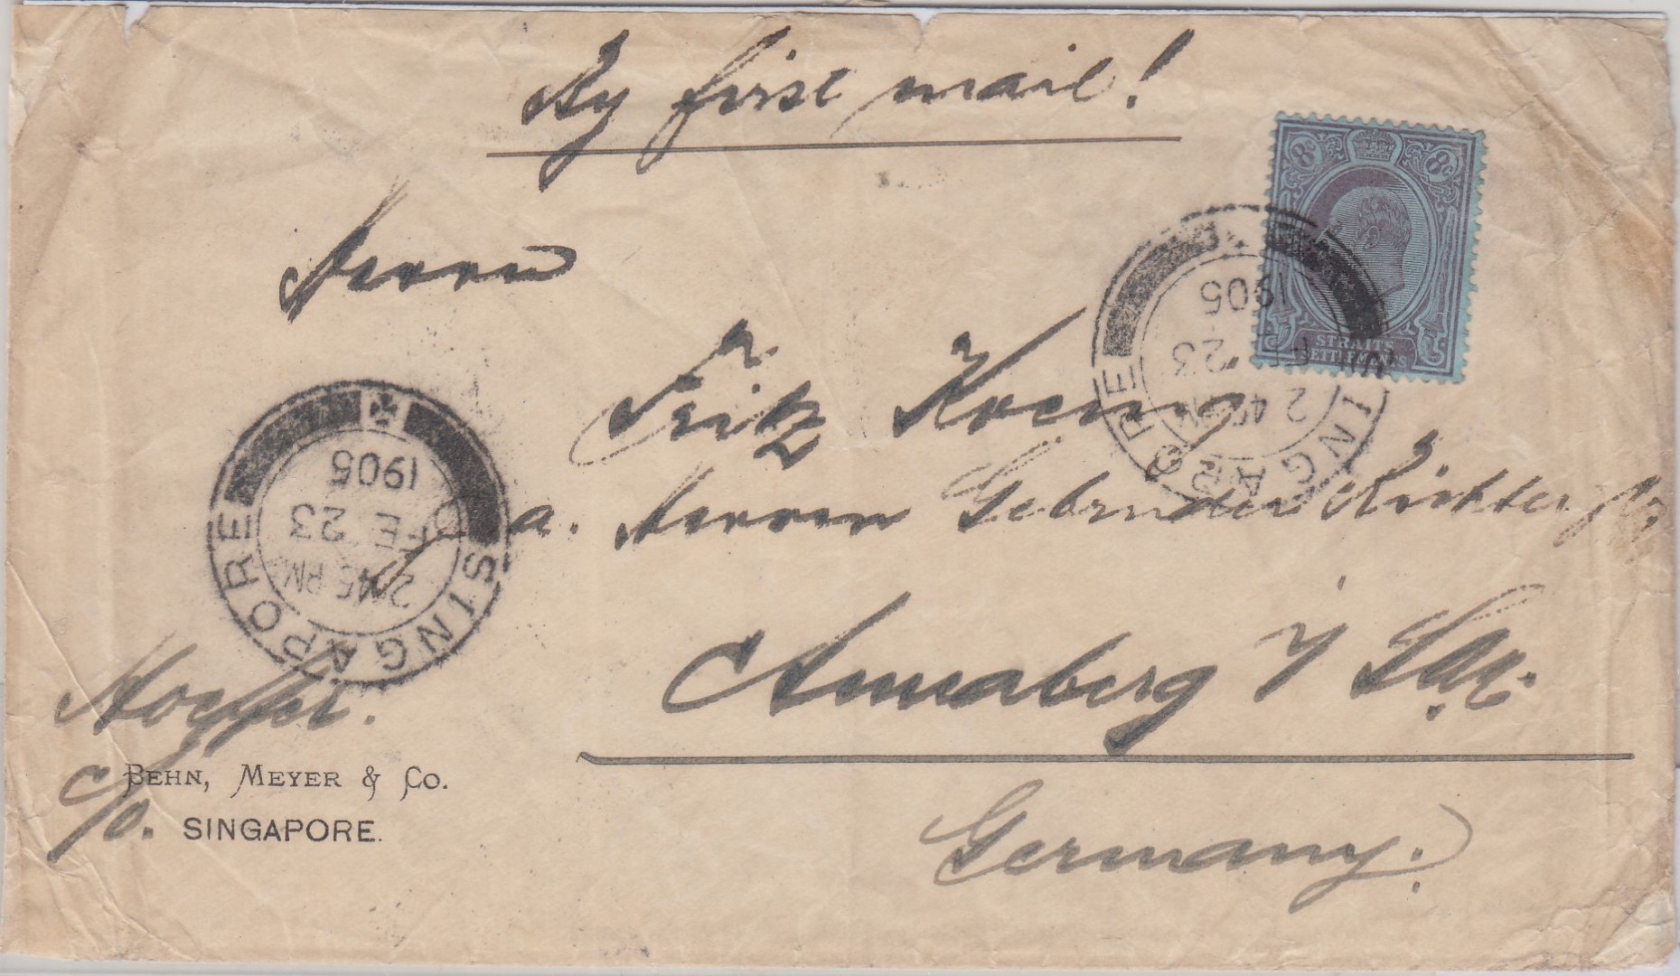 By first mail!
8c 8c
STRAITS
SETTLEMENTS
Herrn
Fritz Koenig
a. Herren Gebrüder Richter
Annaberg i/ Sa.
Germany.
SINGAPORE
1905
FE 23
2 45 PM
SINGAPORE
1905
FE 23
2 45 PM
c/o.
BEHN, MEYER & Co.
SINGAPORE.